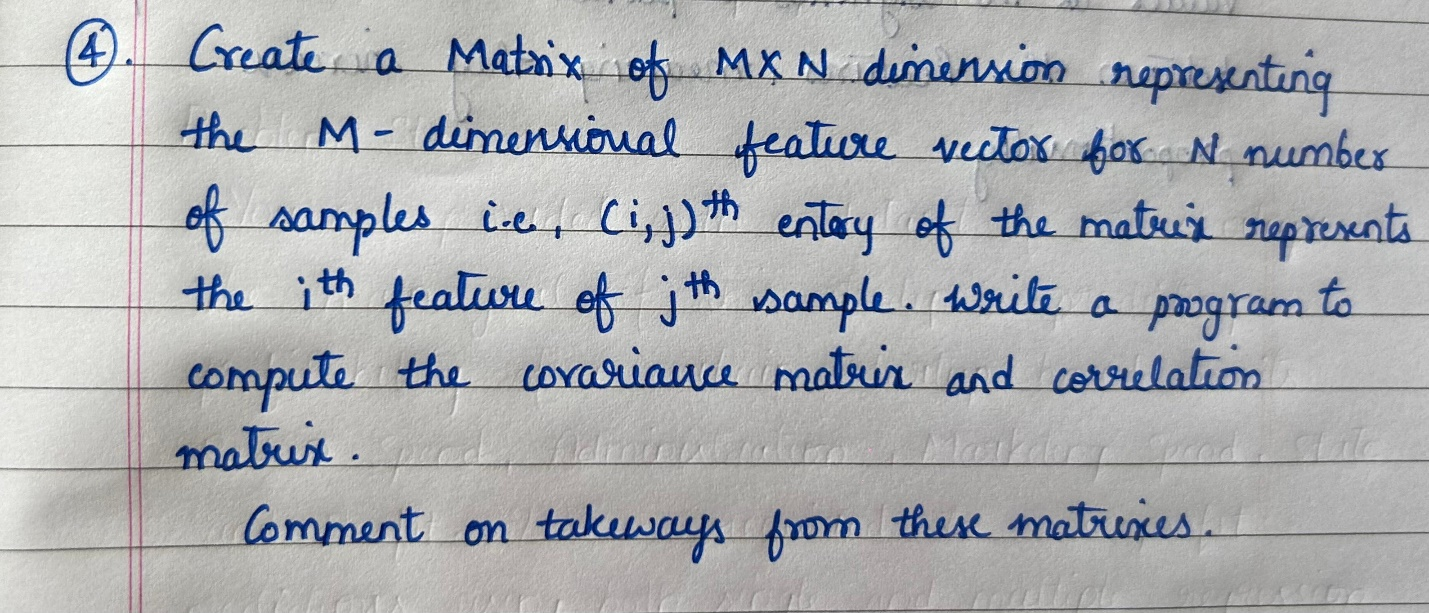 4. Create a Matrix of MXN dimension representing
the M- dimensional feature vector for N number
of samples i.e, (i,j)th entory of the matrix represents
the ith feature of jth sample. Write a program to
compute the covariance matrix and correlation
matrix.
Comment on takeways from these matrixes.